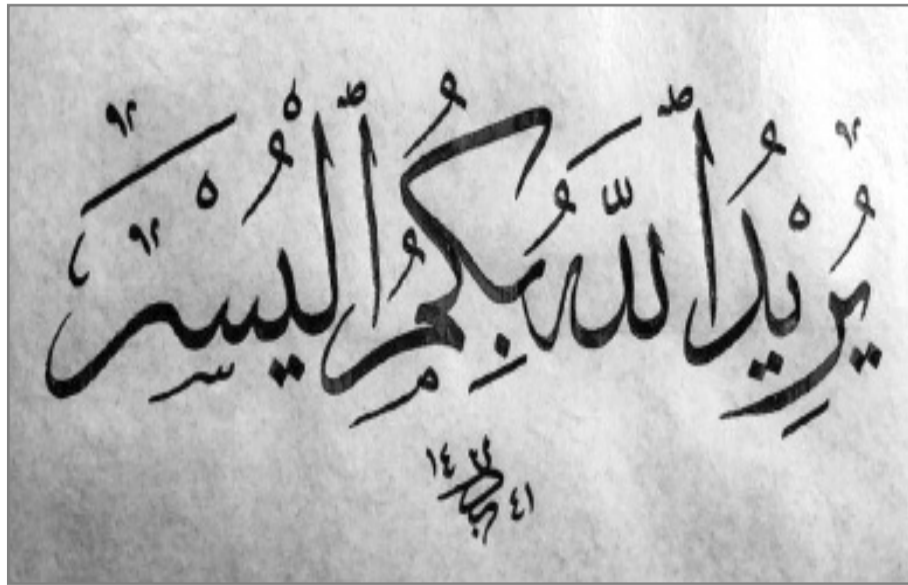 يُرِيْدُ ٱللّٰهُ بِكُمُ ٱلْيُسْرَ
١٤ ٤١